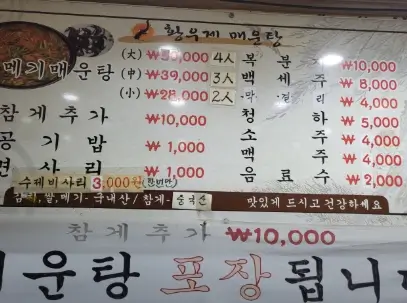 황우게 매운탕
메기매운탕 (大) 4人
(中) ₩39,000 3人
(小) ₩28,000 2人
참게추가 ₩10,000
공기밥 ₩1,000
면사리 ₩1,000
수제비사리 3,000원 (한번만)
복분자 ₩10,000
백세주 ₩8,000
막걸리 ₩4,000
청하 ₩5,000
소주 ₩4,000
맥주 ₩4,000
음료수 ₩2,000
김치,쌀,메기-국내산/참게-중국산
맛있게 드시고 건강하세요
참게추가 ₩10,000
운탕 포장됩니